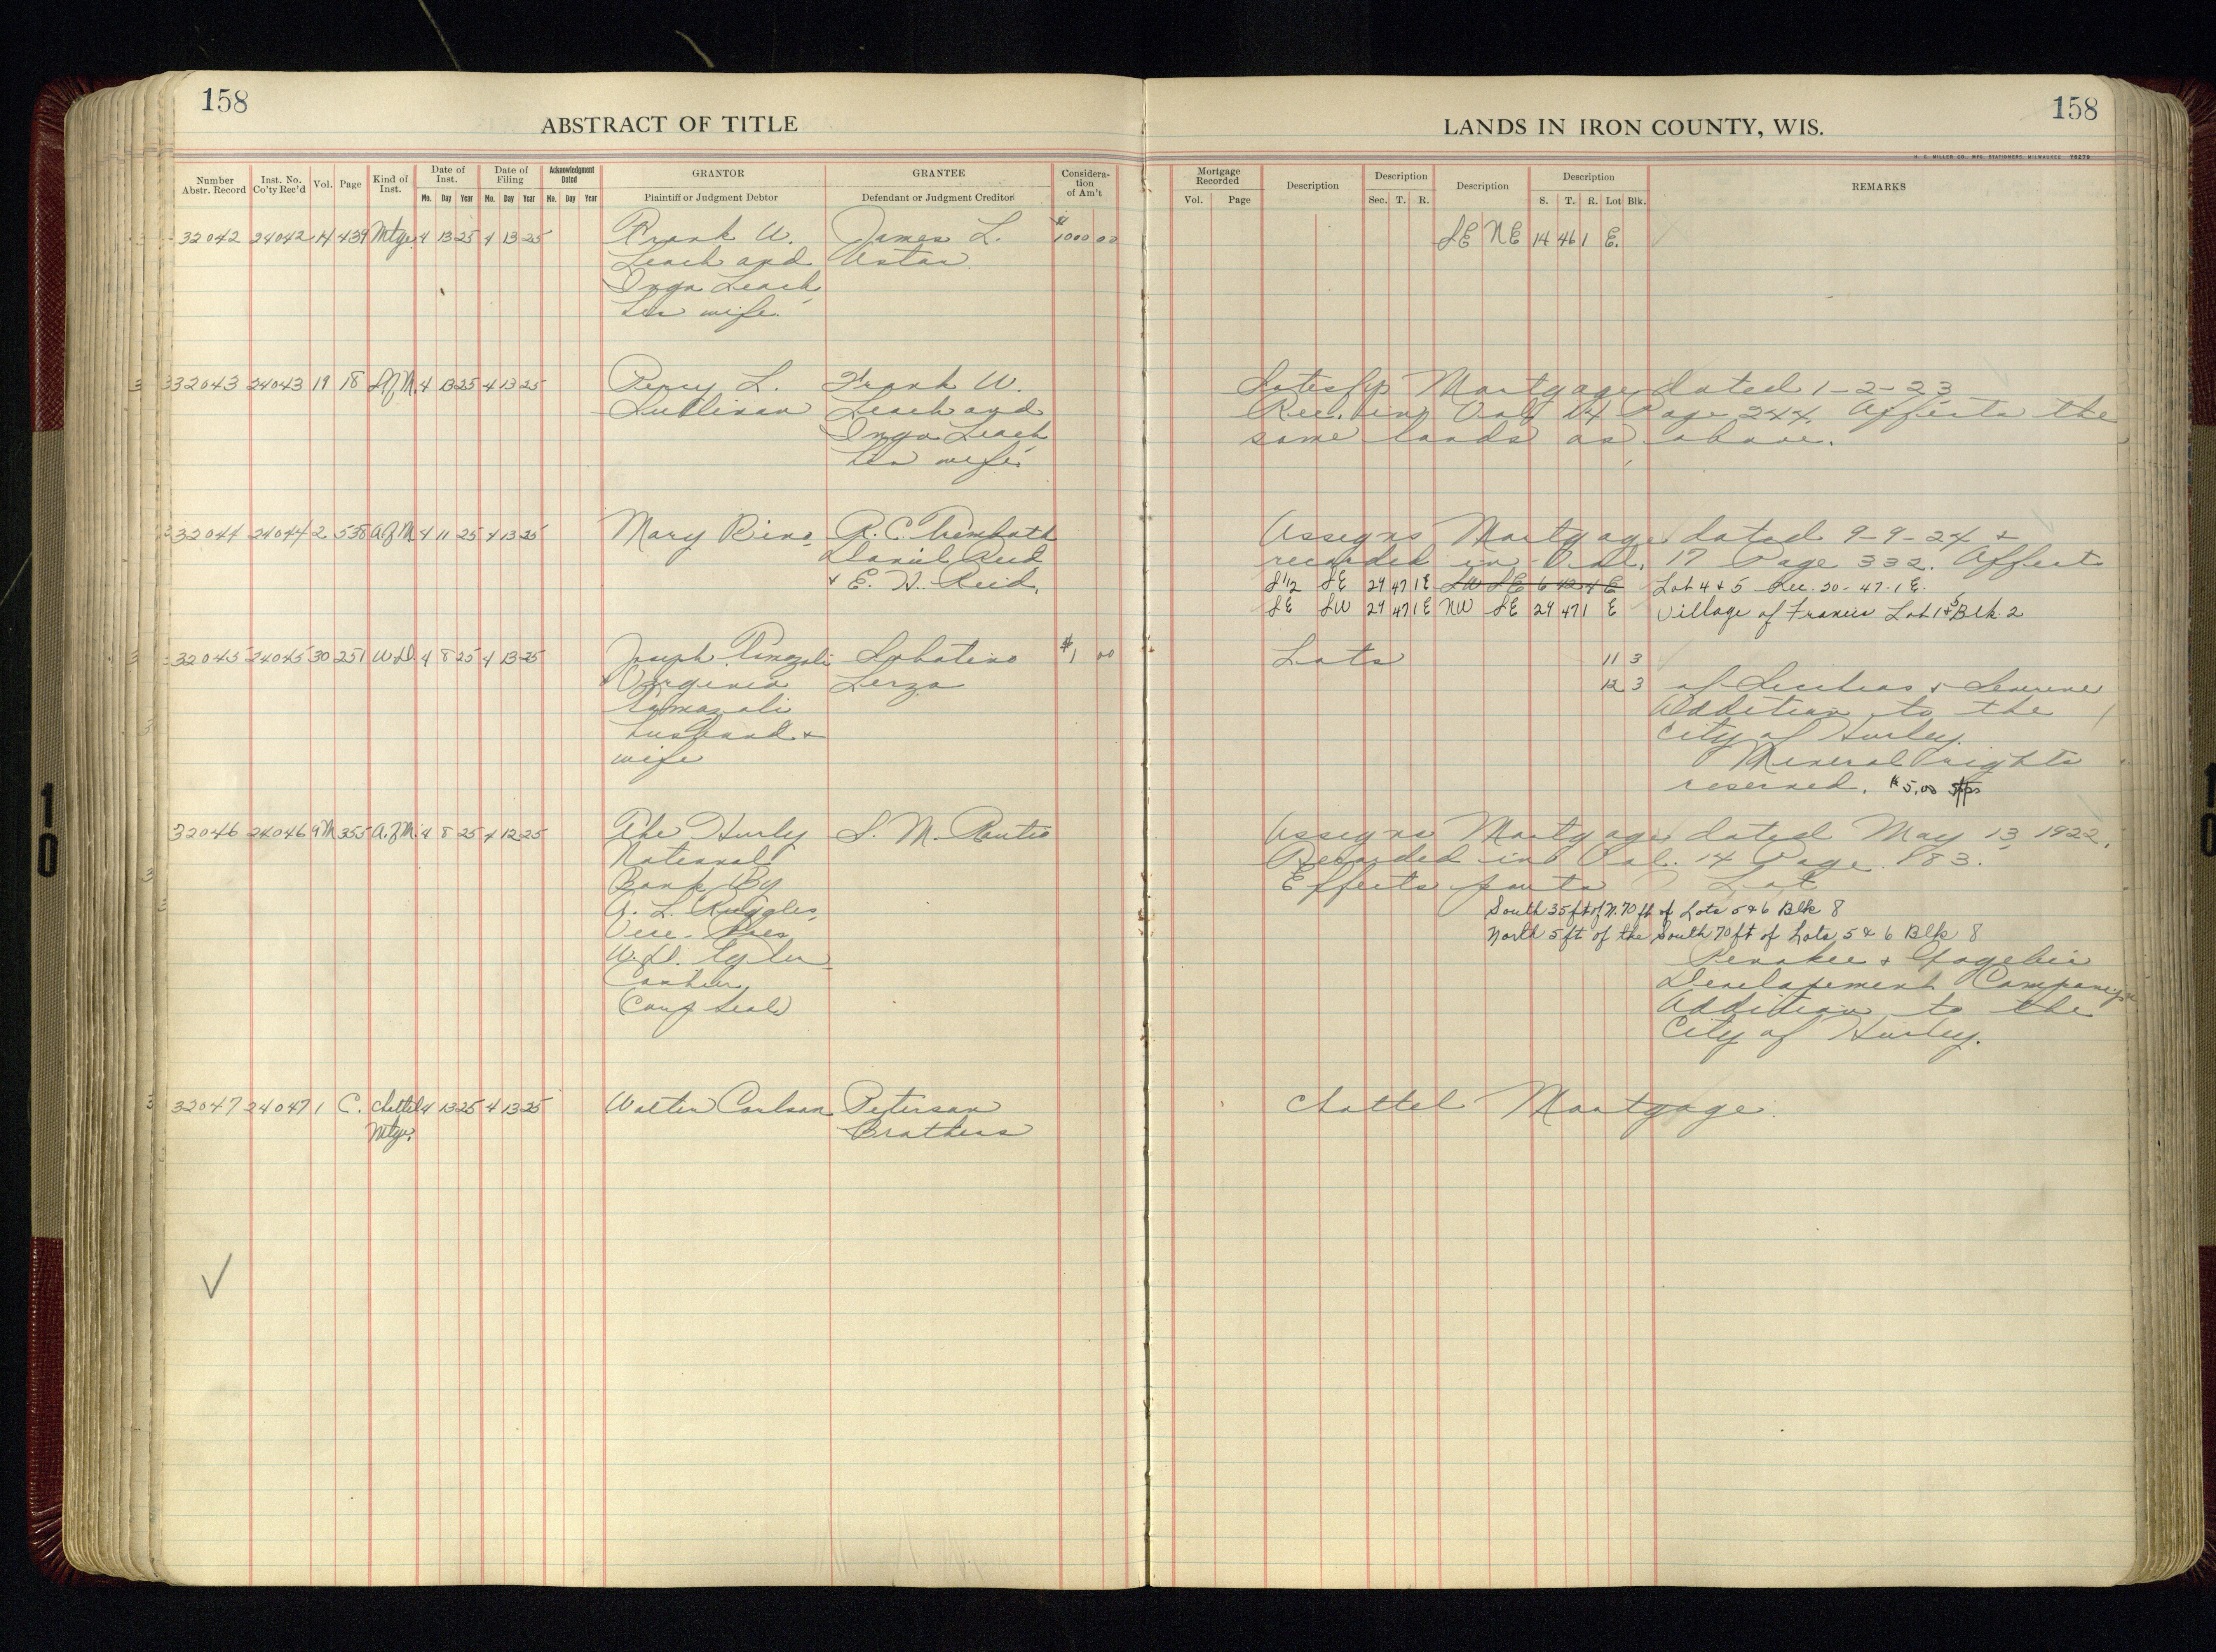 158
158
ABSTRACT OF TITLE
LANDS IN IRON COUNTY, WIS.
H. C. MILLER CO., MFG. STATIONERS, MILWAUKEE
Number Abstr. Record
Inst. No. Co'ty Rec'd
Vol.
Page
Kind of Inst.
Date of Inst.
Date of Filing
Acknowledgment Dated
GRANTOR
GRANTEE
Considera-tion of Am't
Mo. Day Year Mo. Day Year Mo. Day Year
Plaintiff or Judgment Debtor
Defendant or Judgment Creditor
Mortgage Recorded
Description
Description
Description
Description
REMARKS
Vol. Page
Sec. T. R.
S. T. R. Lot Blk.
32042 24042 14 439 Mtge. 4 13 25 4 13 25 Frank W. James L. $1000 00 SE NE 14 46 1 E.
Leach and
Inga Leach
his wife.
32043 24043 19 18 S of M. 4 13 25 4 13 25 Percy L. Frank W. Mortgage dated 1-2-23
Sullivan Leach and Rec. in Vol 14 Page 244. Affects the
Inga Leach same lands as above.
his wife.
32044 24044 2 538 A of M 4 11 25 4 13 25 Mary R. C. Trembath Assigns Mortgage dated 9-9-24 +
Daniel Reid recorded in Vol. 17 Page 332. Affects
+ E. H. Reid. S 1/2 SE 29 47 1 E SW SE 6 42 4 E Lot 4 & 5 Sec. 20-47-1 E.
SE SW 29 47 1 E NW SE 29 47 1 E Village of Francis Lot 1 & 5 Blk. 2
32045 24045 30 251 W.D. 4 8 25 4 13 25 Joseph $1 00 Lots 11 3
Virginia 12 3 of
Addition to the
husband + City of Hurley.
wife Mineral rights
reserved. $5.00
32046 24046 9M 355 A. of M. 4 8 25 4 12 25 The Hurly S. M. Assigns Mortgage dated May 13, 1922.
National Recorded in Vol. 14 Page 183.
Bank By Effects parts Lot
South 35 ft of N. 70 ft of Lots 5 & 6 Blk 8
Vice-Pres North 5 ft of the South 70 ft of Lots 5 & 6 Blk 8
W. S. Penokee + Gogebic
Cashier Developement Company's
Corp Seal Addition to the
City of Hurley.
32047 24047 1 C. Chattel 4 13 25 4 13 25 Walter Carlson Peterson Chattel Mortgage.
Mtge. Brothers